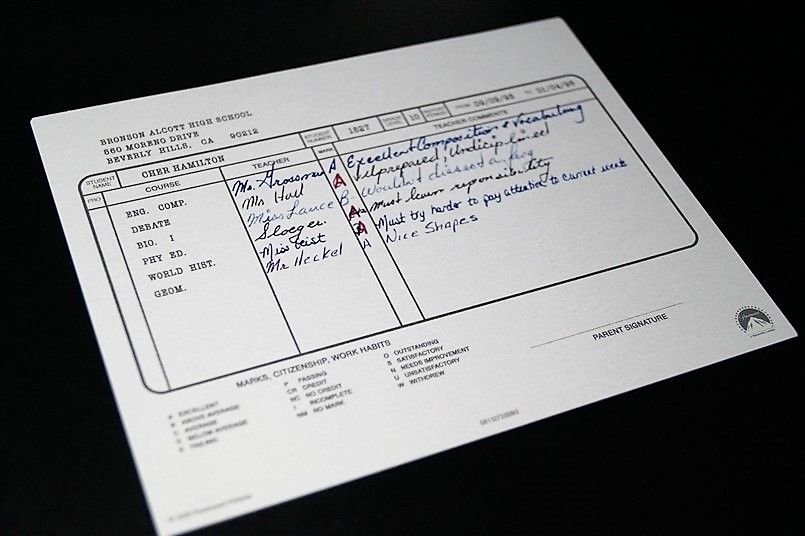 BRONSON ALCOTT HIGH SCHOOL
660 MORENO DRIVE
BEVERLY HILLS, CA 90212
STUDENT NAME CHER HAMILTON STUDENT NUMBER 1827 10 FROM 09/09/95 TO
PRD COURSE TEACHER MARK TEACHER COMMENTS
ENG. COMP. Mr. Grossman A Excellent Composition & Vocabulary
DEBATE Mr Hall A Ill prepared! Undiciplined
BIO. I Miss Lance B. Wouldn't dissect a frog
PHY ED. Stoeger A- Must learn responsibility
WORLD HIST. Miss Geist A Must try harder to pay attention to current events
GEOM. Mr. Heckel A Nice Shapes
MARKS, CITIZENSHIP, WORK HABITS
PARENT SIGNATURE
A EXCELLENT P PASSING O OUTSTANDING
B ABOVE AVERAGE CR CREDIT S SATISFACTORY
C AVERAGE NC NO CREDIT N NEEDS IMPROVEMENT
D BELOW AVERAGE I INCOMPLETE U UNSATISFACTORY
F FAILING NM NO MARK W WITHDREW
Paramount